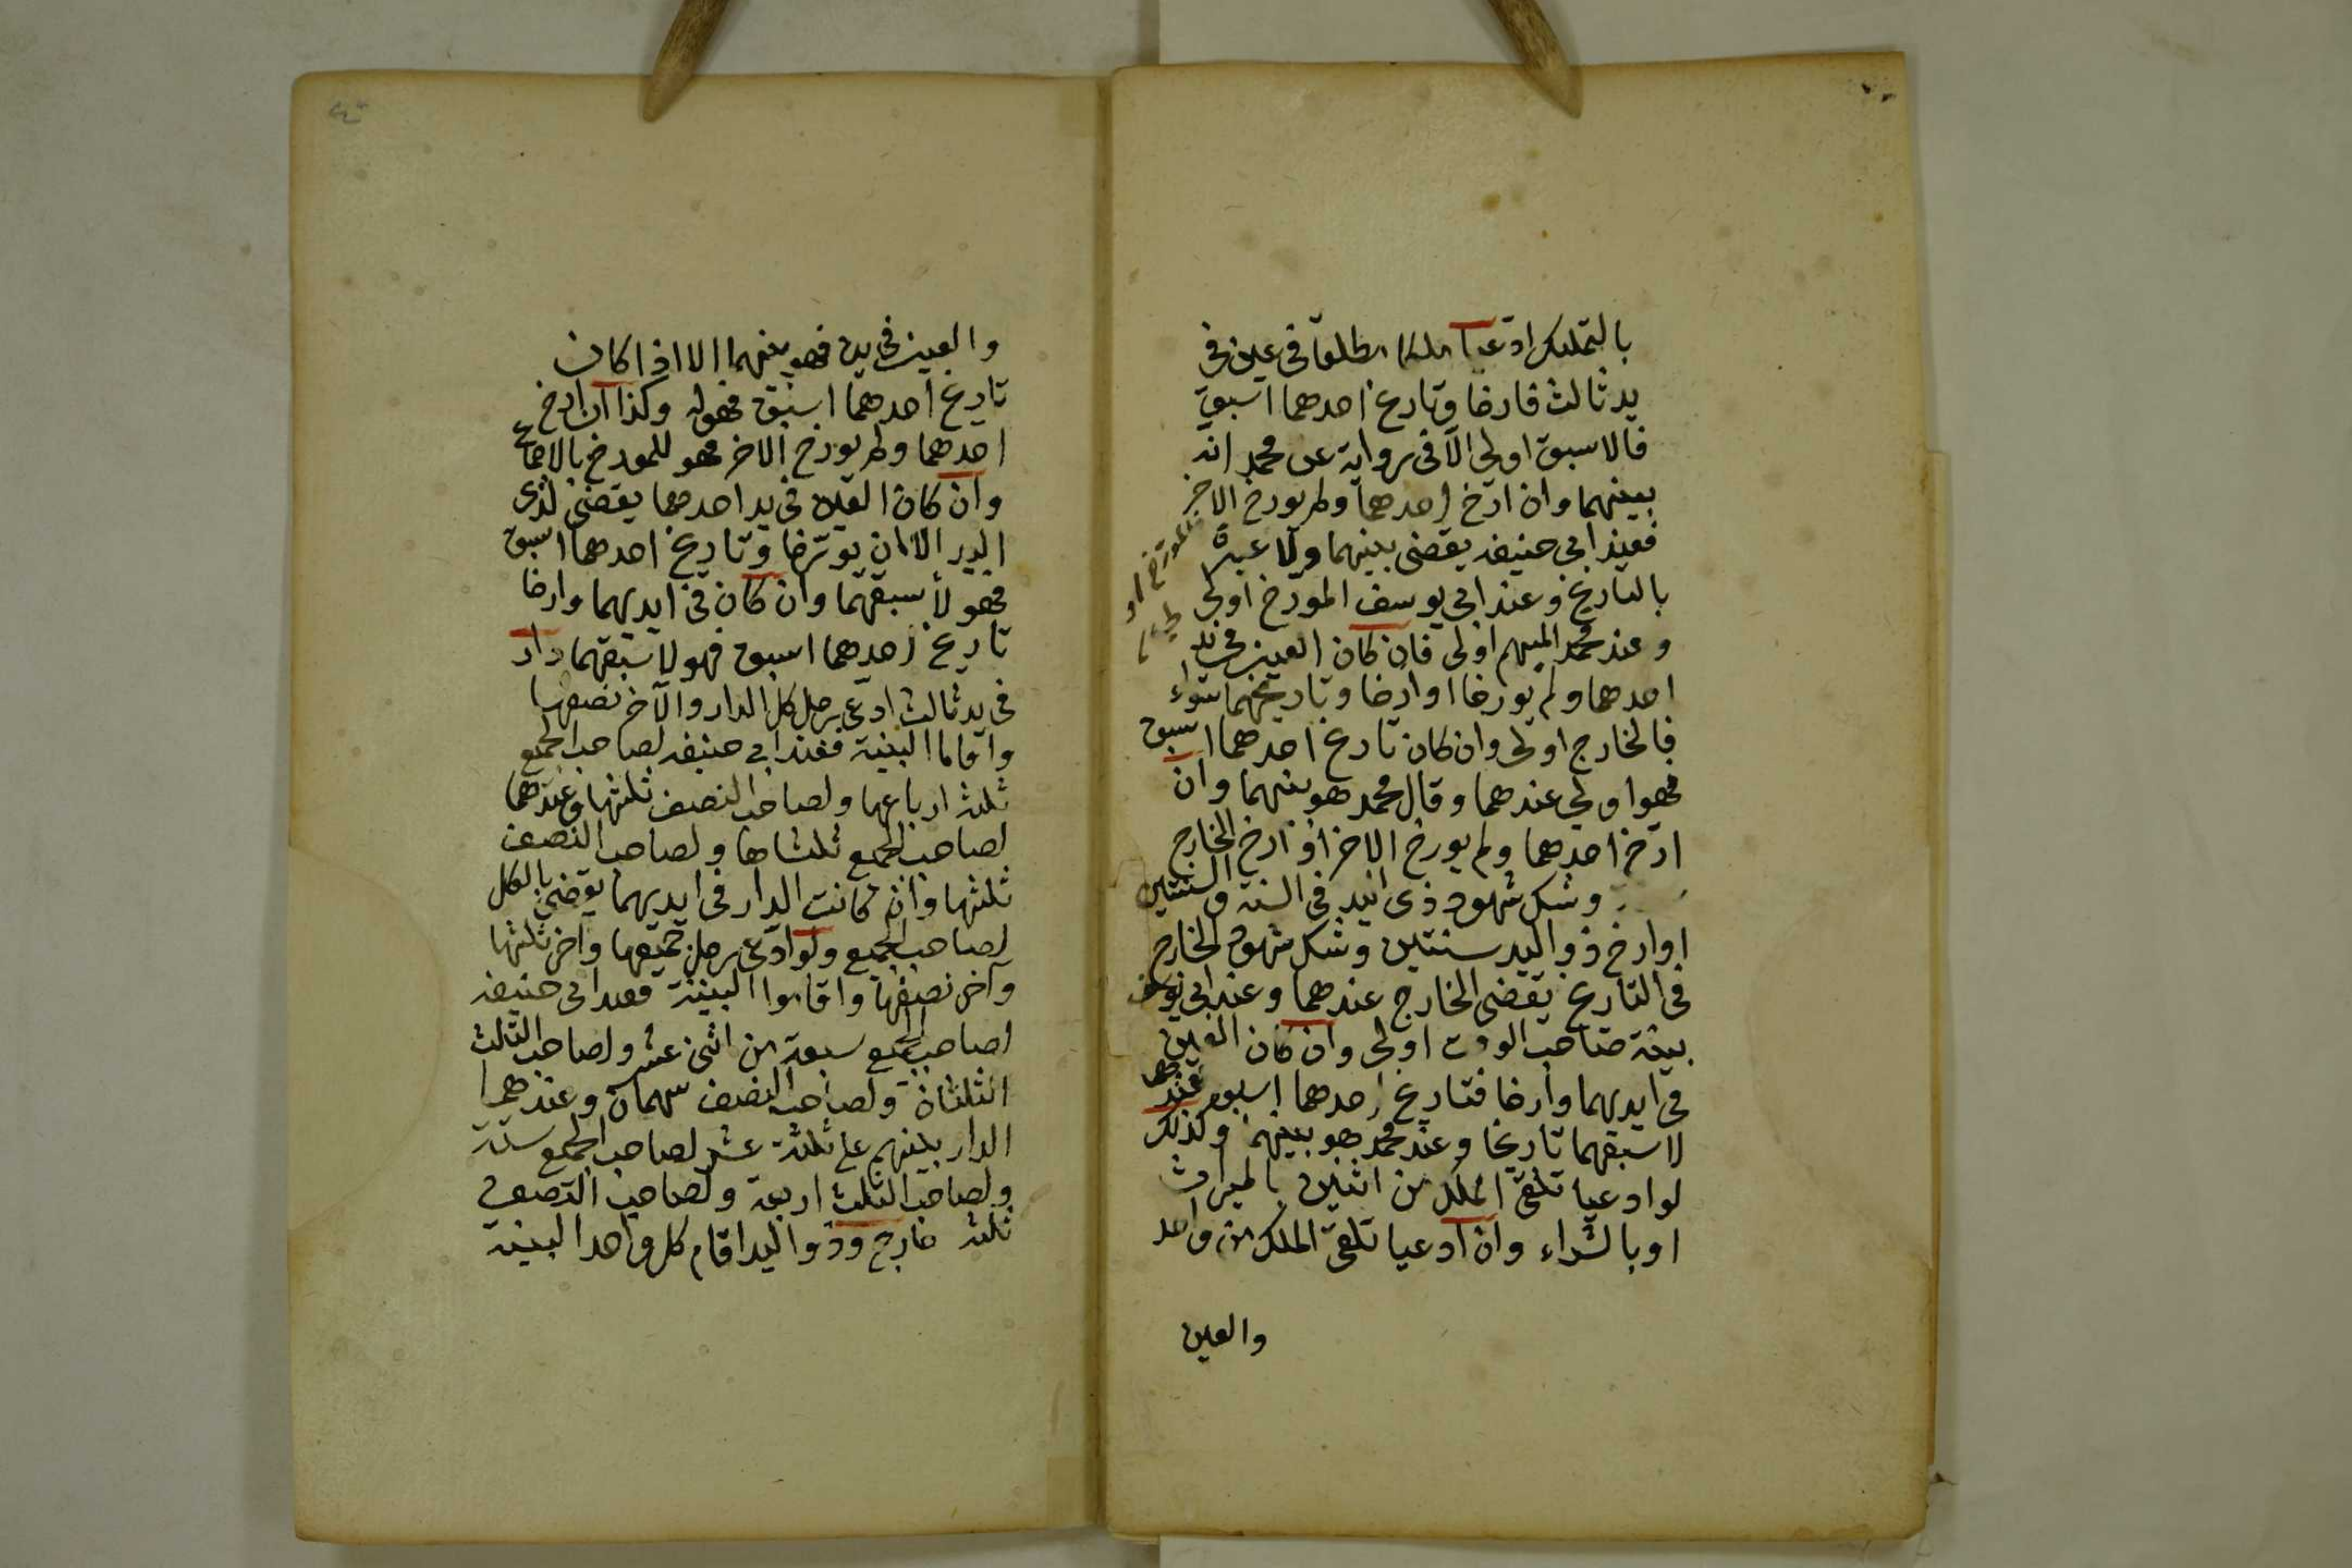 بالتمليك ادعيا ملكا مطلقا في عين في
يد ثالث فارخا وتاريخ احدهما اسبق
فالاسبق اولى الا في رواية عن محمد انه
بينهما وان ارخ احدهما ولم يورخ الاخر
فعند ابي حنيفه يقضى بينهما ولا عبرة
بالتاريخ وعند ابي يوسف المورخ اولى
وعند محمد المبهم اولى فان كان العين في يد
احدهما ولم يورخا او ارخا وتاريخهما سواء
فالخارج اولى وان كان تاريخ احدهما اسبق
فهو اولى عندهما وقال محمد هو بينهما وان
ارخ احدهما ولم يورخ الاخر او ارخ الخارج
وشك شهود ذى اليد في السنة والسنتين
او ارخ ذو اليد سنتين وشك شهود الخارج
في التاريخ يقضى الخارج عندهما وعند ابي يوسف
بينة صاحب الوقت اولى وان كان العين
في ايديهما وارخا فتاريخ احدهما اسبق عندهما
لاسبقهما تاريخا وعند محمد هو بينهما وكذلك
لو ادعيا تلقى الملك من اثنين بالميراث
او بالشراء وان ادعيا تلقى الملك من واحد
والعين
والعين في يده فهو بينهما الا اذا كان
تاريخ احدهما اسبق فهو له وكذا ان ارخ
احدهما ولم يورخ الاخر فهو للمورخ بالاجماع
وان كان العين في يد احدهما يقضى لذى
اليد الا ان يورخا وتاريخ احدهما اسبق
فهو لأسبقهما وان كان في ايديهما وارخا
تاريخ احدهما اسبق فهو لاسبقهما دار
في يد ثالث ادعى رجل كل الدار والآخر نصفها
واقاما البينة فعند ابي حنيفه لصاحب الجميع
ثلثة ارباعها ولصاحب النصف ثلثها وعندهما
لصاحب الجميع ثلثاها ولصاحب النصف
ثلثها وان كانت الدار في ايديهما يقضى بالكل
لصاحب الجميع ولو ادعى رجل جميعها وآخر ثلثها
وآخر نصفها واقاموا البينة فعند ابي حنيفه
لصاحب الجميع سبعة من اثنى عشر ولصاحب الثلث
الثلثان ولصاحب النصف سهمان وعندهما
الدار بينهم على ثلثة عشر لصاحب الجميع ستة
ولصاحب الثلث اربعة ولصاحب النصف
ثلثة خارج وذو اليد اقام كل واحد البينة